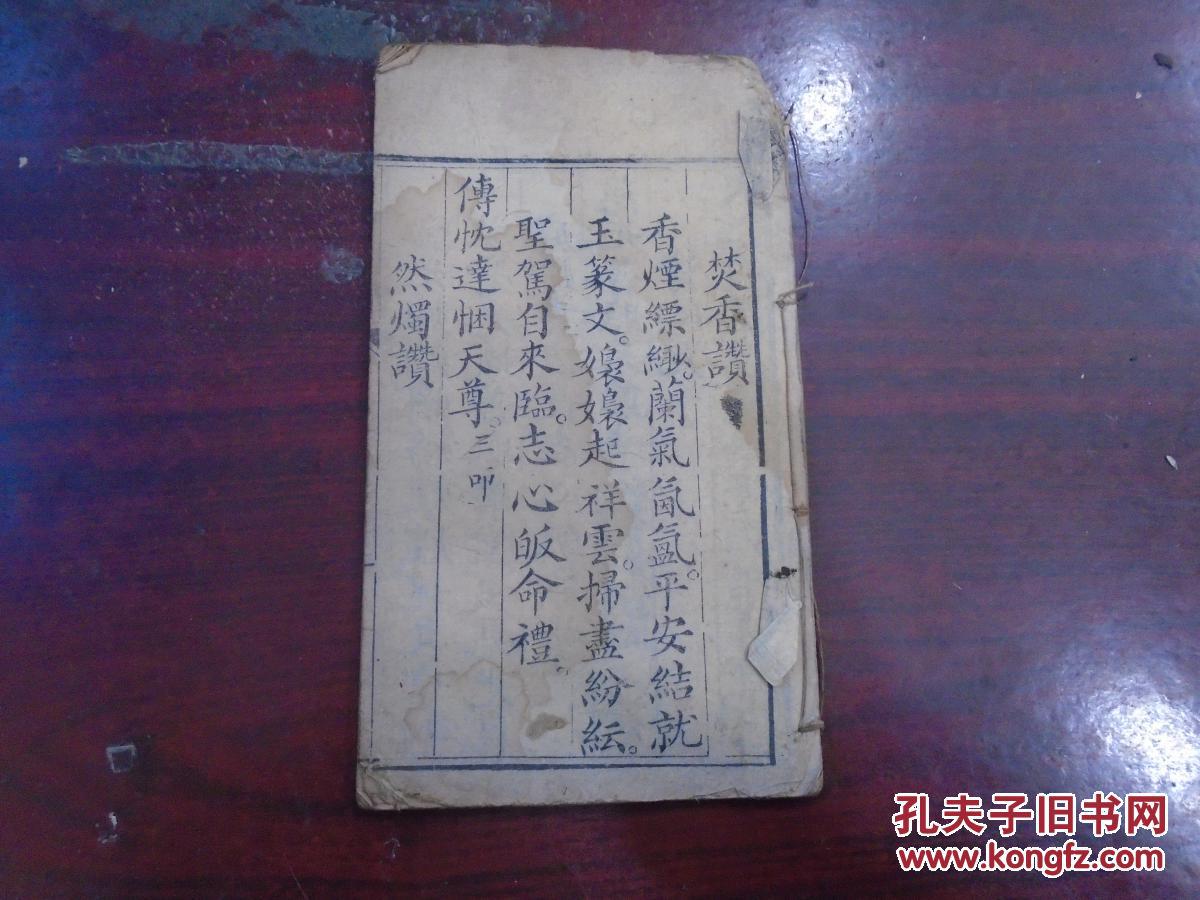 焚香讚
香煙縹緲。蘭氣氤氳。平安結就
玉篆文。嬝嬝起祥雲。掃盡紛紜。
聖駕自來臨。志心皈命禮。
傳忱達悃天尊。三叩
然燭讚
孔夫子旧书网
www.kongfz.com